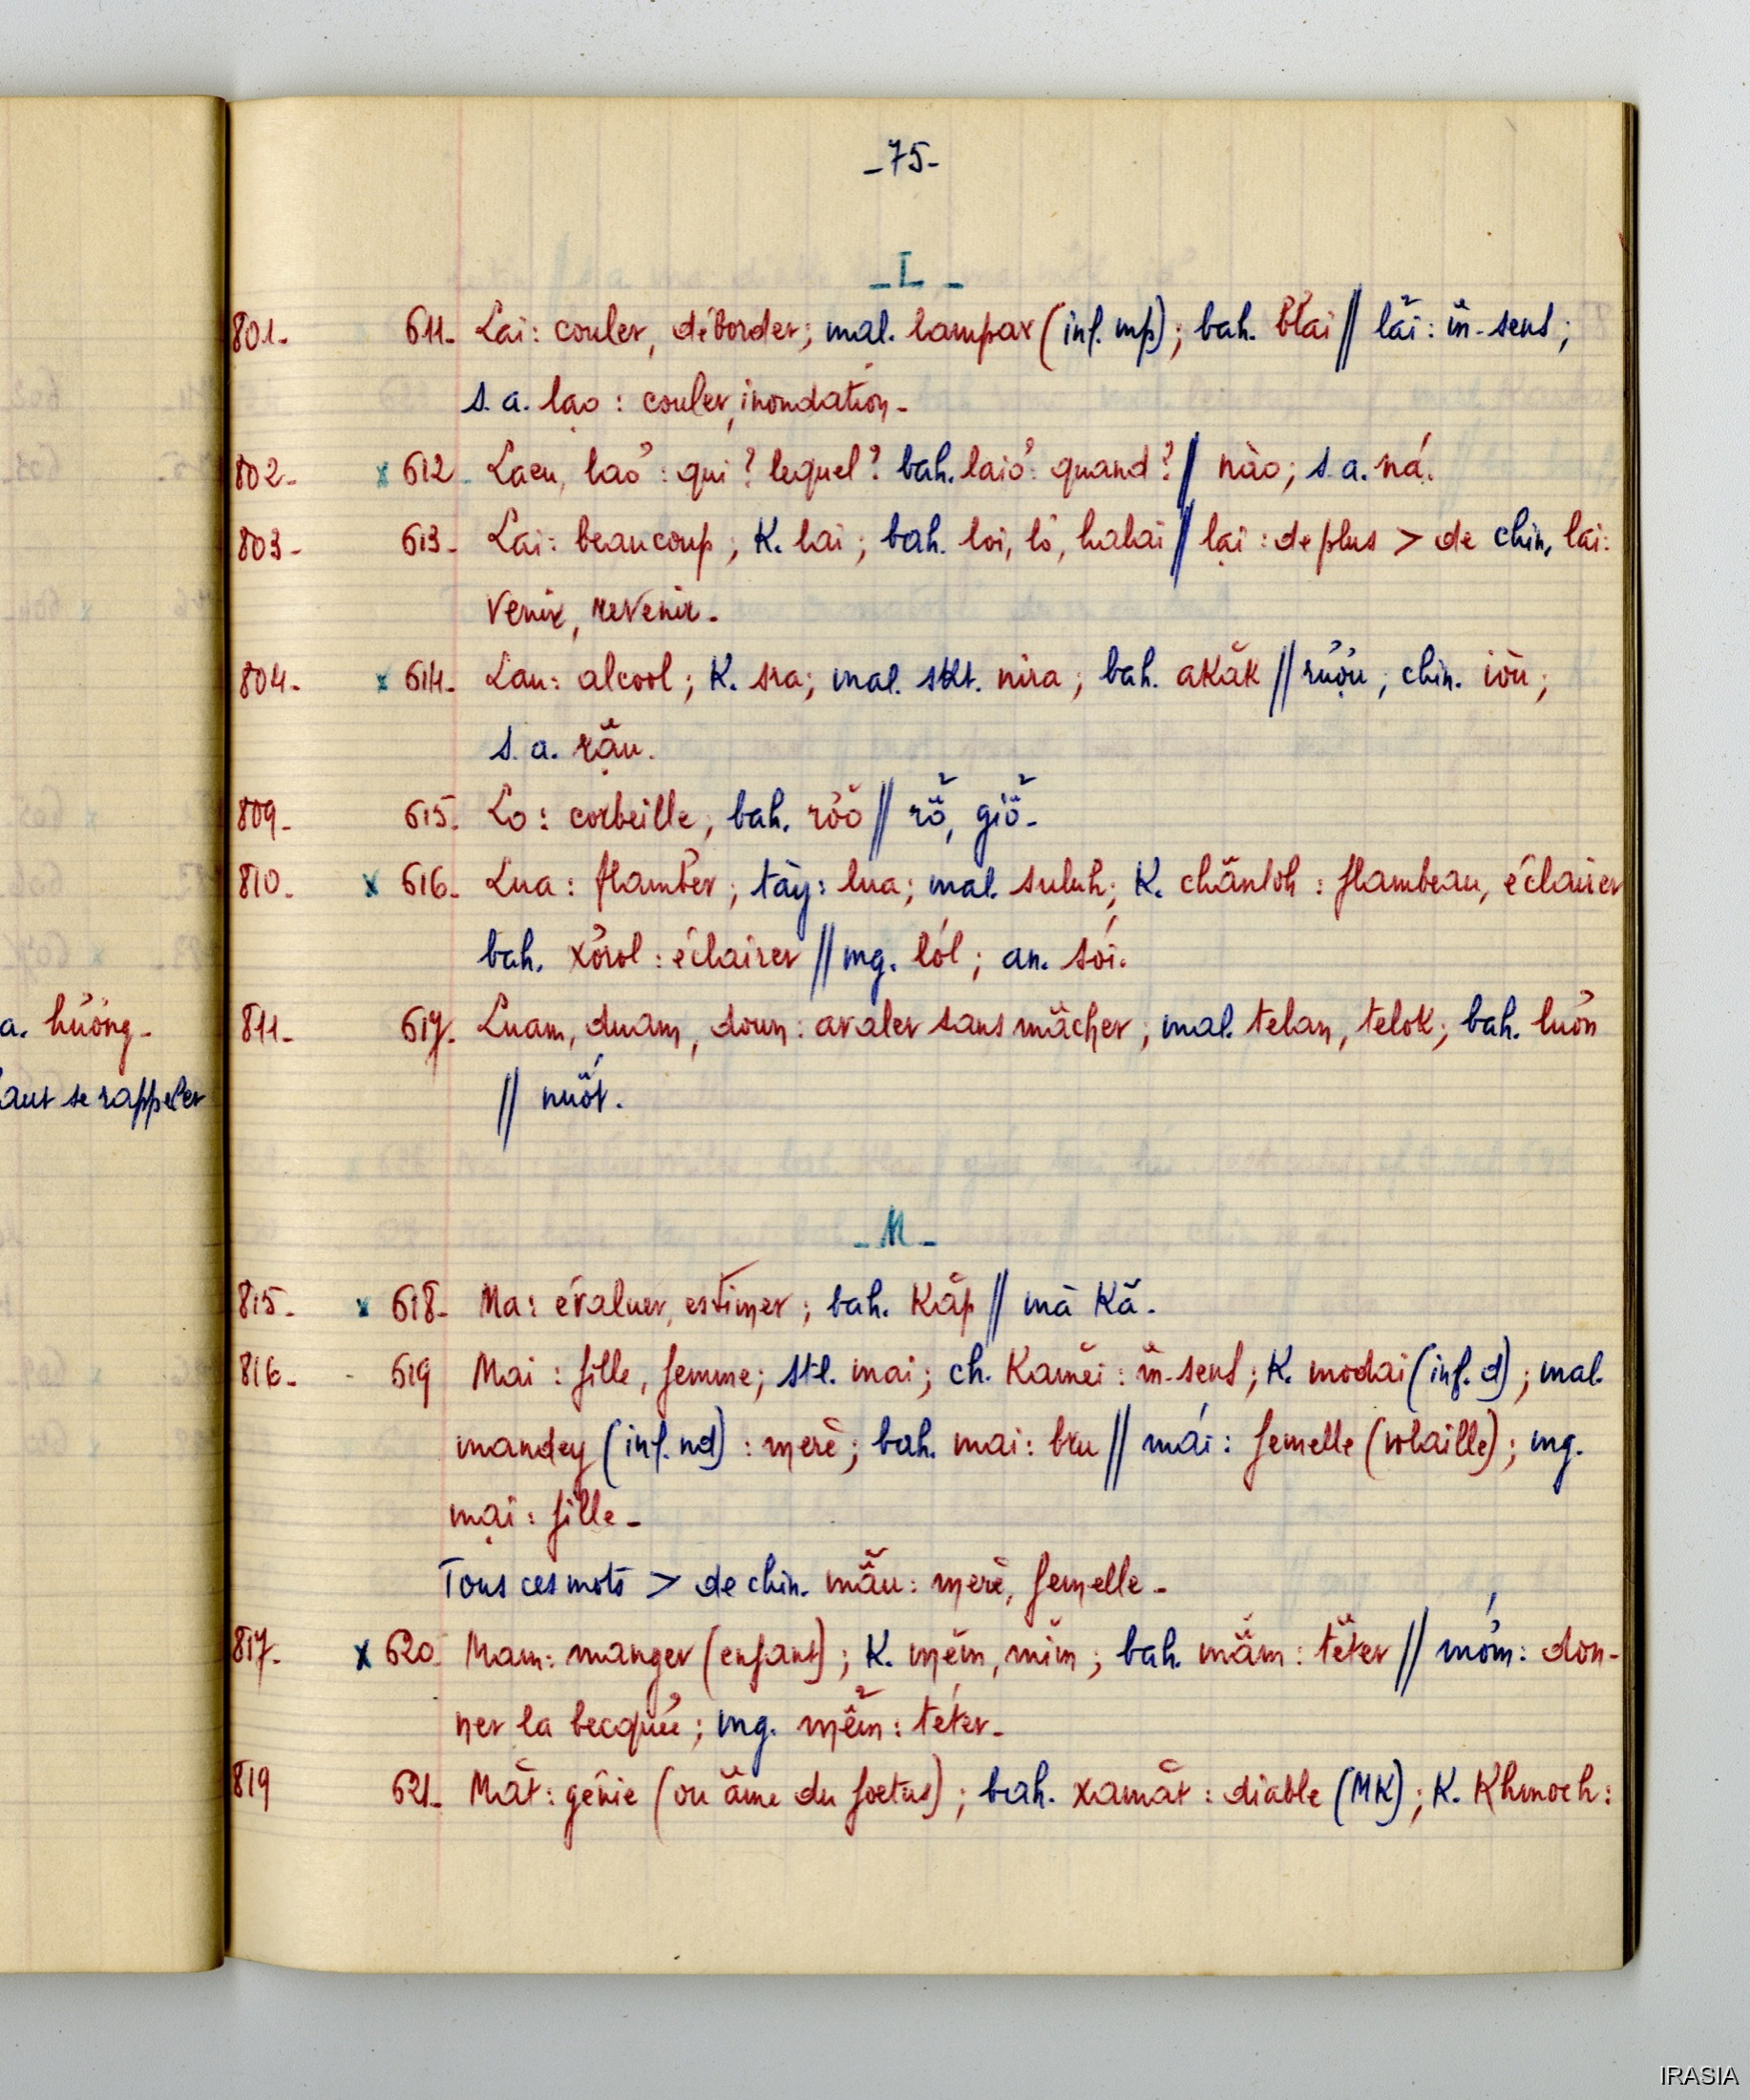 -75-
- L -
801- 611- Lai: couler, déborder; mal. lampar (inf. mp); bah. blai // lãi: m̂-sens;
s.a. lạo: couler, inondation-
802- x 612- Laeu, laơ: qui? lequel? bah. laiơ: quand? // nào; s.a. ná.
803- 613- Lai: beaucoup; K. lai; bah. loi, lơ, halai // lại: de plus > de chin. lai:
venir, revenir-
804- x 614- Lau: alcool; K. sra; mal. skt. nira; bah. akăk // rượu; chin. iòu;
s.a. rậu.
809- 615- Lo: corbeille; bah. rơ̆ŏ // rỗ, giỗ-
810- x 616- Lua: flamber; tày: lua; mal. suluh; K. chânloh: flambeau, éclairer
bah. xơrol: éclairer // mg. lól; an. sói.
a. hường- 811- 617- Luam, duam, doun: avaler sans mâcher; mal. telan, telok; bah. luơn
aut se rappeler // nuốt.
- M -
815- x 618- Ma: évaluer, estimer; bah. kăp // mà kă-
816- 619 Mai: fille, femme; stl. mai; ch. Kamĕi: m̂-sens; K. modai (inf. d); mal.
mandey (inf. nd): merè; bah. mai: bru // mái: femelle (volaille); mg.
mại: fille-
Tous ces mots > de chin. mẫu: merè, femelle-
817- x 620- Mam: manger (enfant); K. mĕm, mŭm; bah. măm: têter // móm: don-
ner la becquée; mg. mễm: téter-
819 621- Măt: génie (ou âme du foetus); bah. xamăt: diable (MK); K. Khmoch:
IRASIA